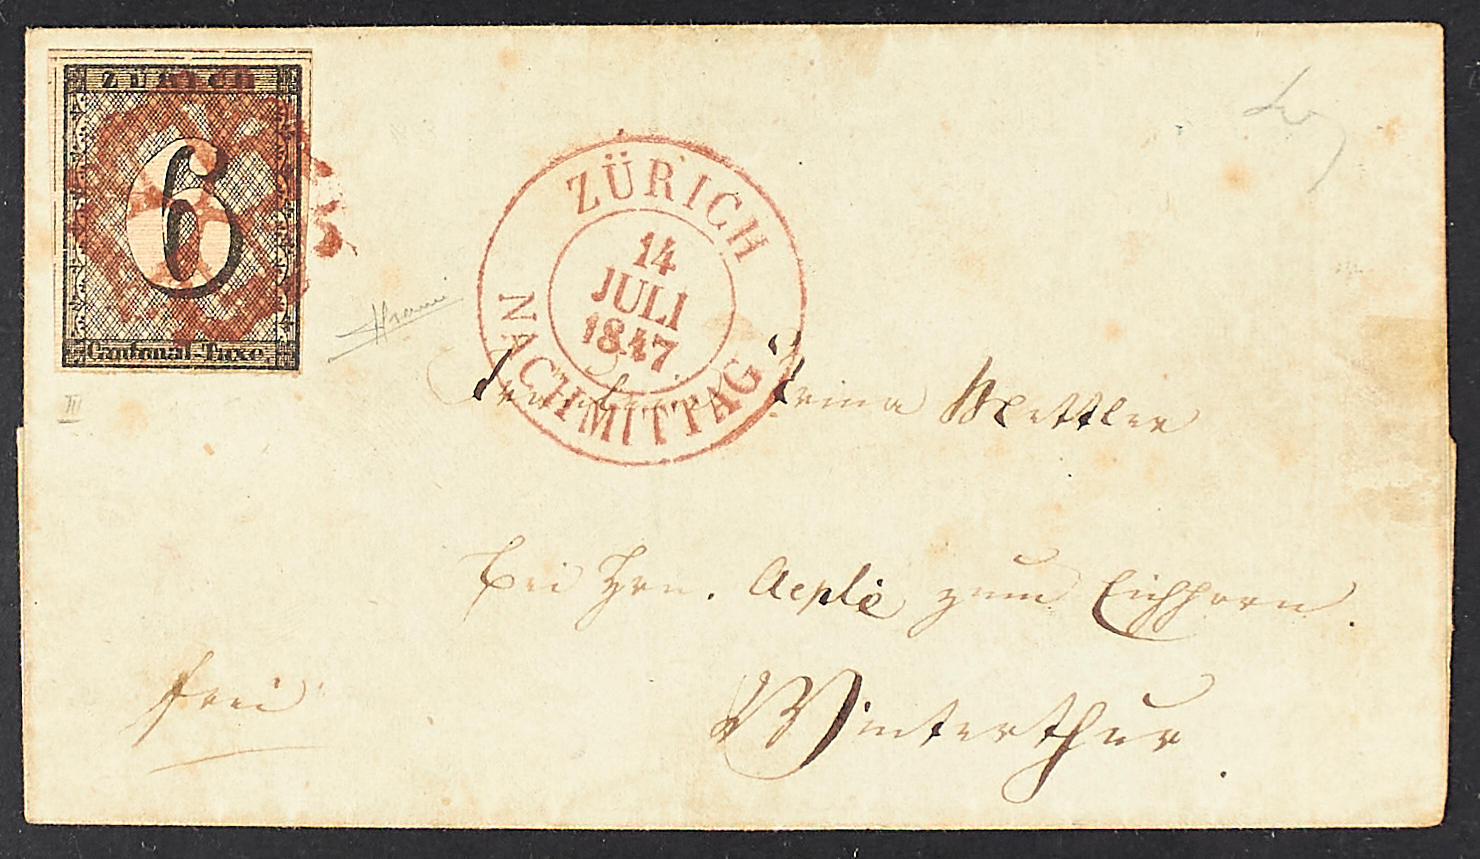 ZÜRICH
6
Cantonal-Taxe.
III
ZÜRICH
14
JULI
1847
NACHMITTAG
Trina Mettler
bei Hrn. Aepli zum Eichhorn.
frei
Winterthur.